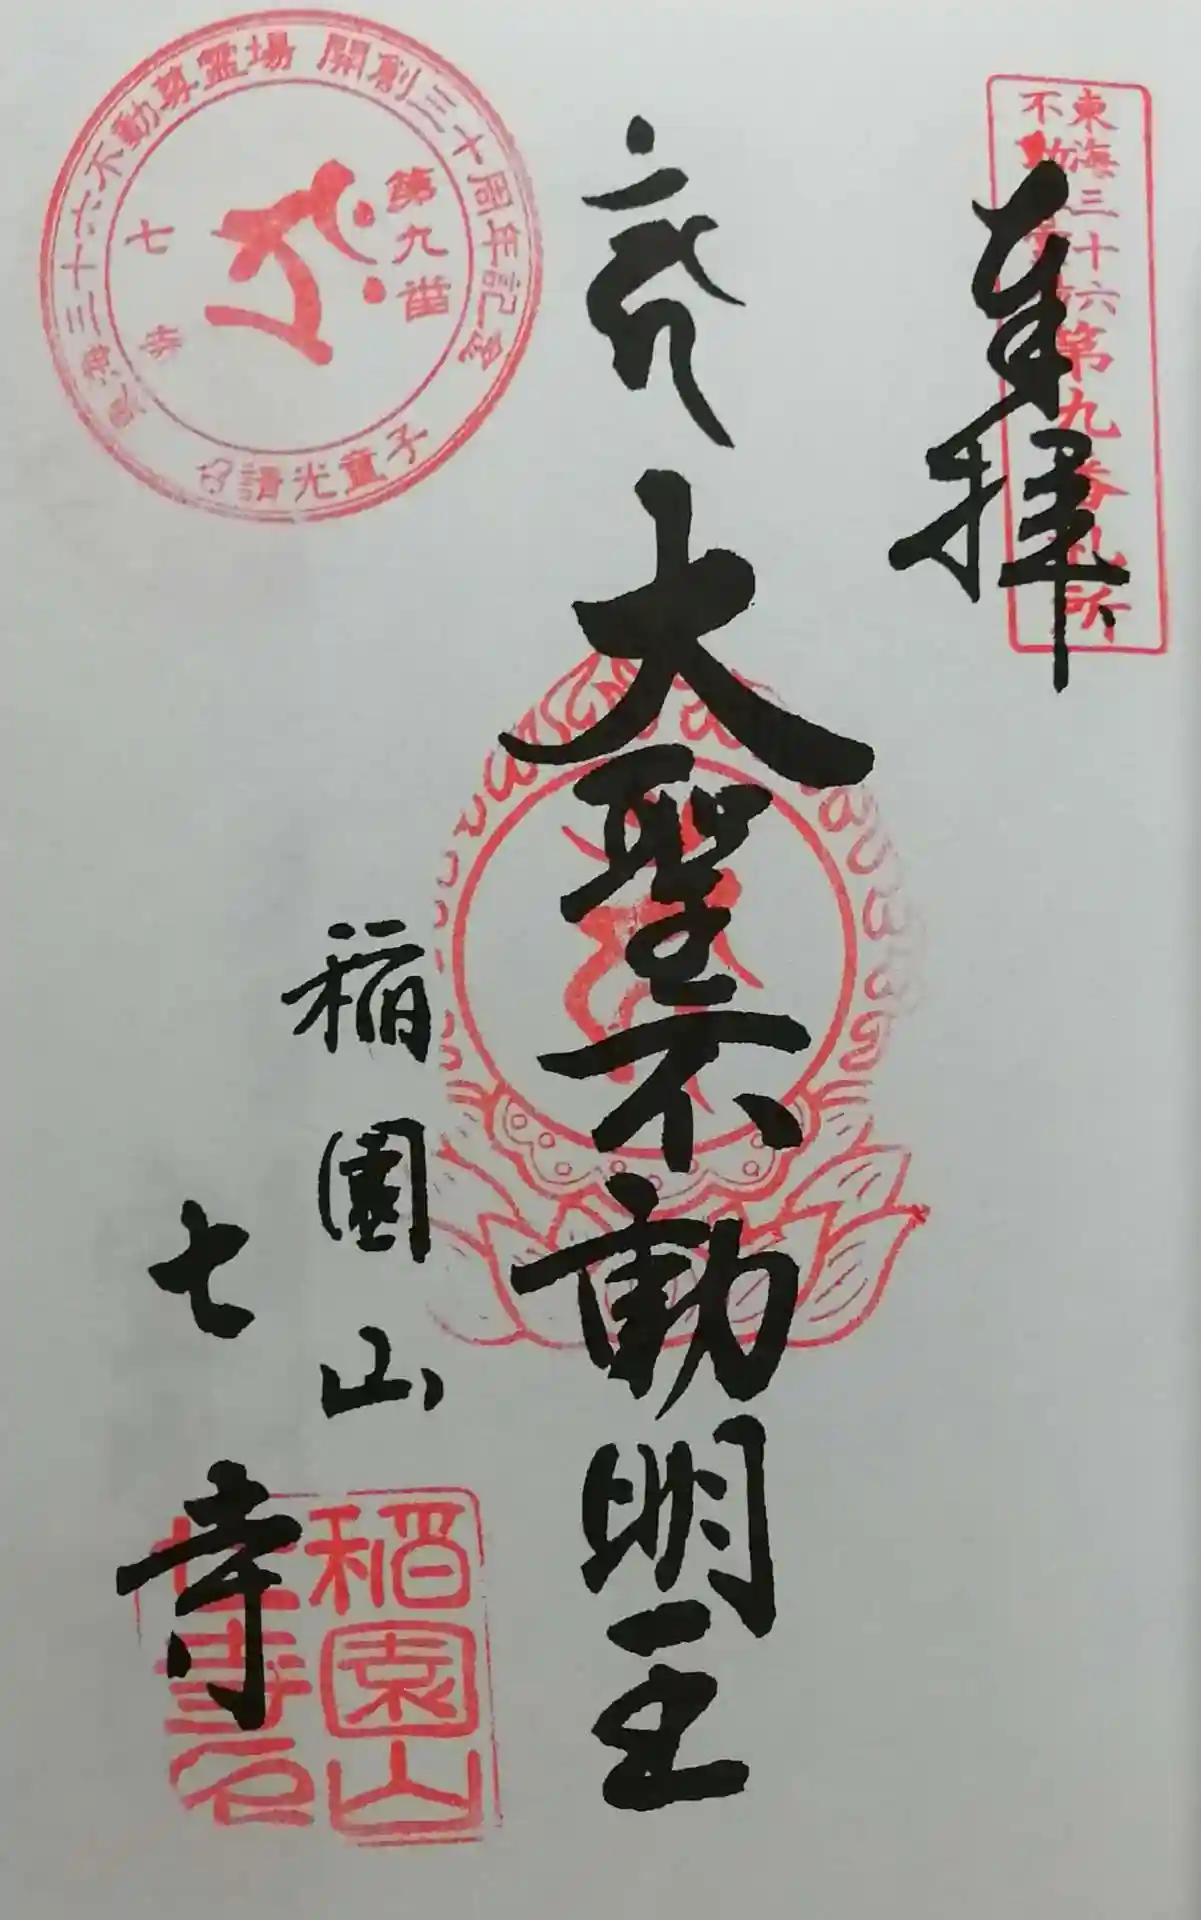 奉拝
東海三十六
不動
第九番札所
大聖不動明王
稲園山
七寺
東海三十六不動尊霊場 開創三十周年記念
第九番
七寺
請光童子
稲園山
七寺